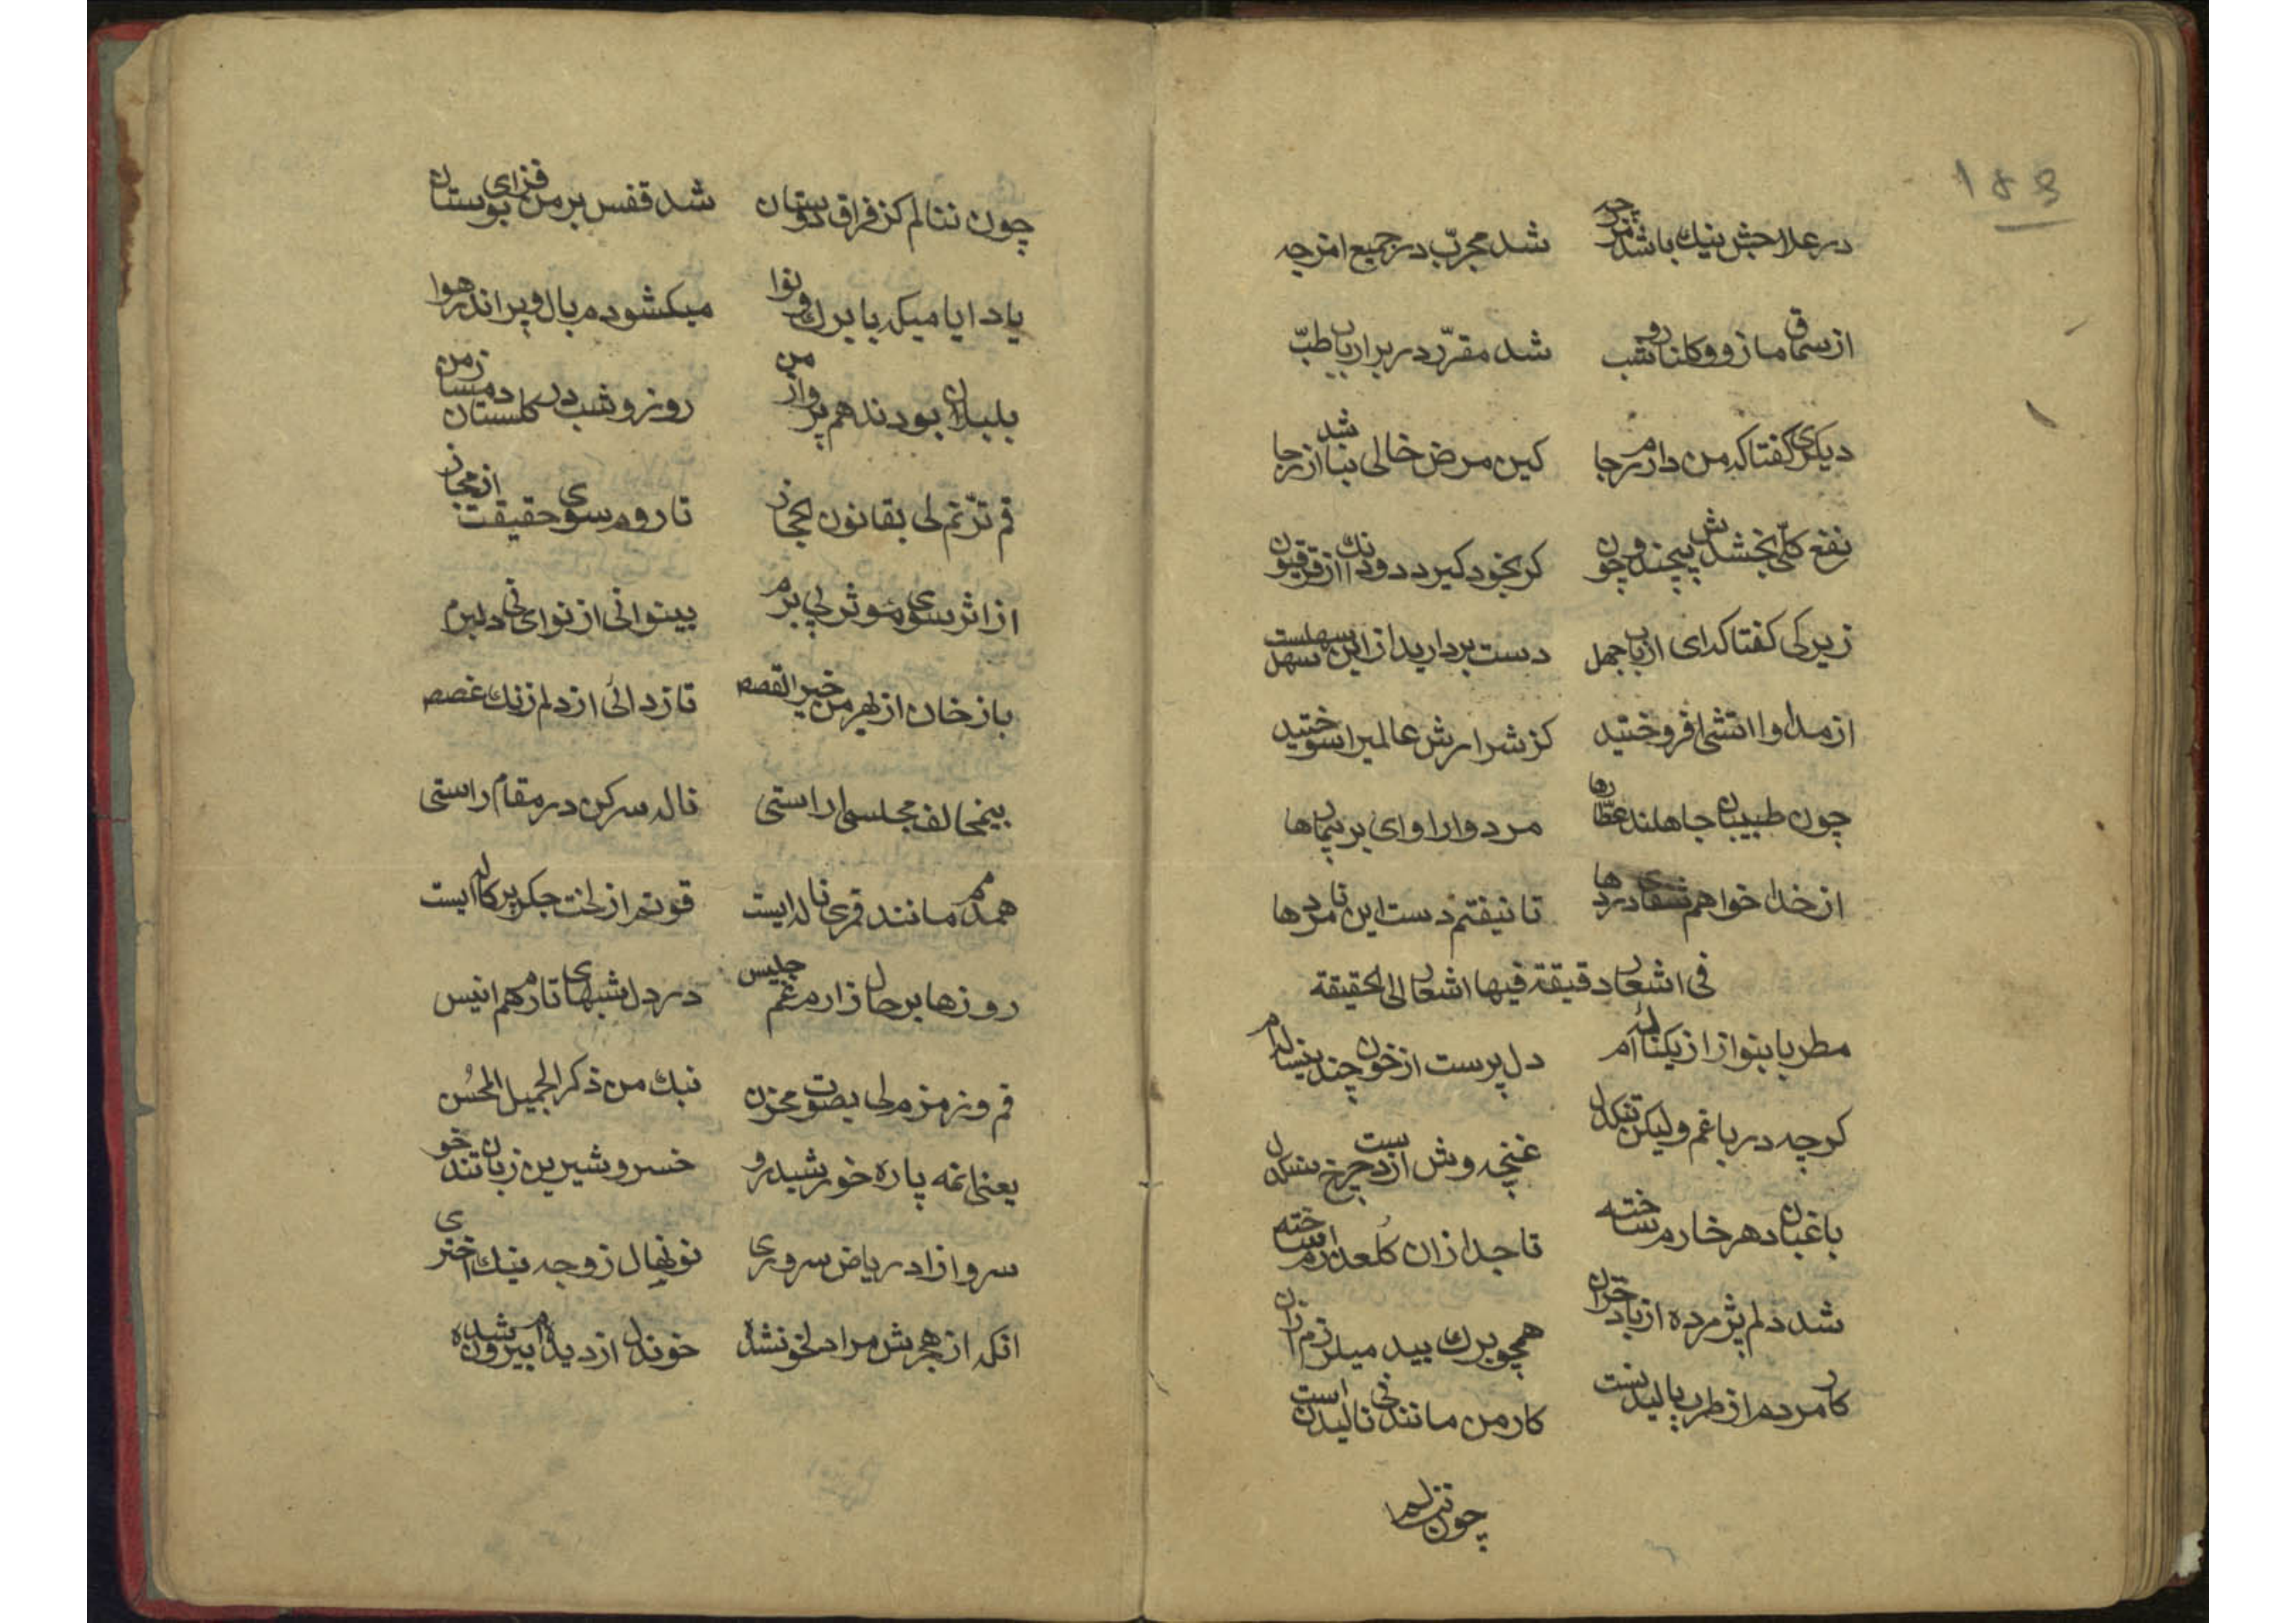 ۱۸۳
در علاجش نیك باشد شد مجرّب در جمیع امزجه
از سماق مازو و کلنار شد مقرّر در بر ارباب طبّ
دیکری کفتا که من دارم رجا کین مرض خالی نباشد از رجا
نفع کلّی بخشدش بیچند و چون کر بخود کیرد دو دانك از فرقیون
زیرکی کفتا که ای ارباب جهل دست بردارید از این سهل
از مداوا اتشی افروختید کز شرارش عالمیرا سوختید
چون طبیبان جاهلند عطّارها مر دوا را وای بر بیمارها
از خدا خواهم دردها تا نیفتم دست این نامردها
فی اشعار دقیقة فیها اشعار الی الحقیقة
مطربا بنواز از یکناله‌ام دل پرست از خون چندینساله‌ام
کرچه در باغم ولیکن تنکدل غنچه وش از دست چرخ سنکدل
باغبان دهر خارم ساخته تا جدا از ان کُلعذارم ساخته
شد دلم پژمرده از باد خزان همچو برك بید میلرزم از ان
کار مردم از طرب بالیدنست کار من مانند نی نالیدن است
چون ننالم
چون ننالم کز فراق دوستان شد قفس بر من فزای بوستان
یاد ایامیکه با برك و نوا میکشودم بال و پر اندر هوا
بلبلان بودند هم پرواز من روز و شب در کلستان دمساز من
قم ترنّم لی بقانون الحجاز تا روم سوی حقیقت از مجاز
از اثر سوی مؤثر پی برم بینوائی از نوای نی دلبرم
باز خان از بهر من خیر القصص تا زدائی از دلم زنك غصص
بیمخالف مجلسی اراستی ناله سر کن در مقام راستی
همدمم مانند قمری ناله ایست قوتم از لخت جکر پرکاله ایست
روزها بر حال زارم غم جلیس در دل شبهای تارم هم انیس
قم و زمزم لی بصوت محزن نبك من ذکر الجمیل المحُسن
یعنی انمه پاره خورشید رو خسرو شیرین زبان تند خو
سرو ازاد ریاض سروری نونهال زوجه نیك اختری
انکه از هجرش مرا دلخونشده خوندل از دیده‌ام بیرون شده